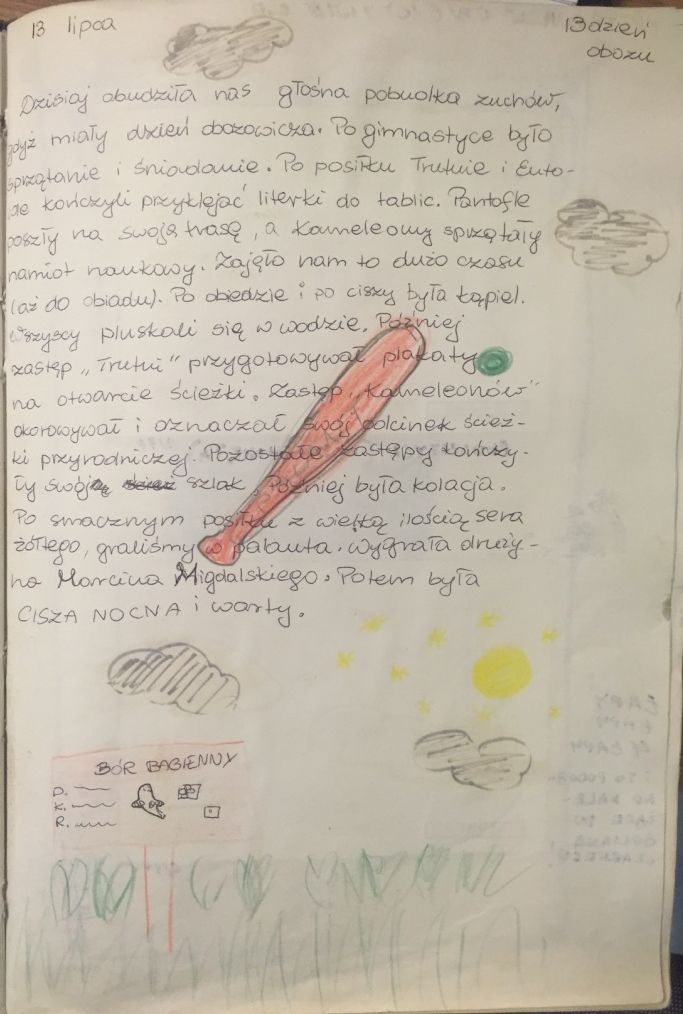 13 lipca
13 dzień
obozu
Dzisiaj obudziła nas głośna pobudka zuchów,
gdyż miały dzień obozowicza. Po gimnastyce było
sprzątanie i śniadanie. Po posiłku Trutnie i Euto-
kończyli przyklejać literki do tablic. Pantofle
poszły na swoją trasę, a Kameleony sprzątały
namiot naukowy. Zajęło nam to dużo czasu
(aż do obiadu). Po obiedzie i po ciszy była kąpiel.
Wszyscy pluskali się w wodzie. Później
zastęp „Trutni" przygotowywał plakaty
na otwarcie ścieżki. Zastęp „Kameleonów"
okorowywał i oznaczał swój odcinek ścież-
ki przyrodniczej. Pozostałe zastępy kończy-
ły swój szlak. Później była kolacja.
Po smacznym posiłku z wielką ilością sera
żółtego, graliśmy w palanta. Wygrała druży-
na Marcina Migdalskiego. Potem była
CISZA NOCNA i warty.
BÓR BAGIENNY
D.
K.
R.